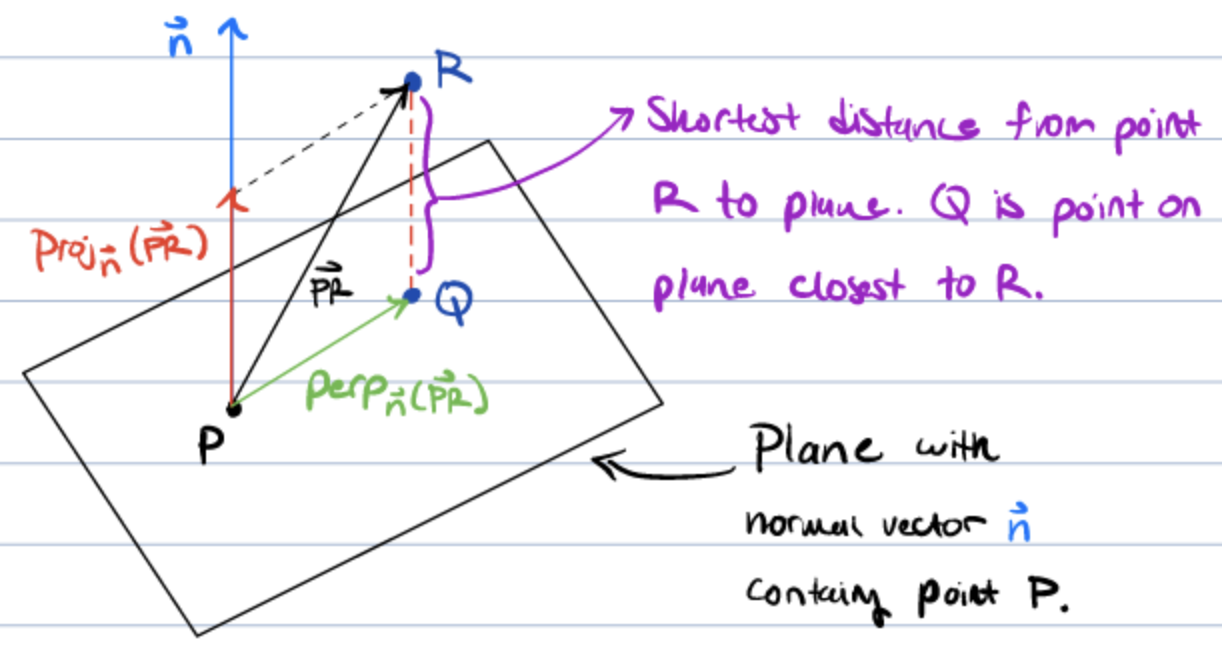 n⃗
R
Shortest distance from point
R to plane. Q is point on
plane closest to R.
Proj_n⃗ (PR⃗)
PR⃗
Q
Perp_n⃗ (PR⃗)
P
Plane with
normal vector n⃗
Containing point P.